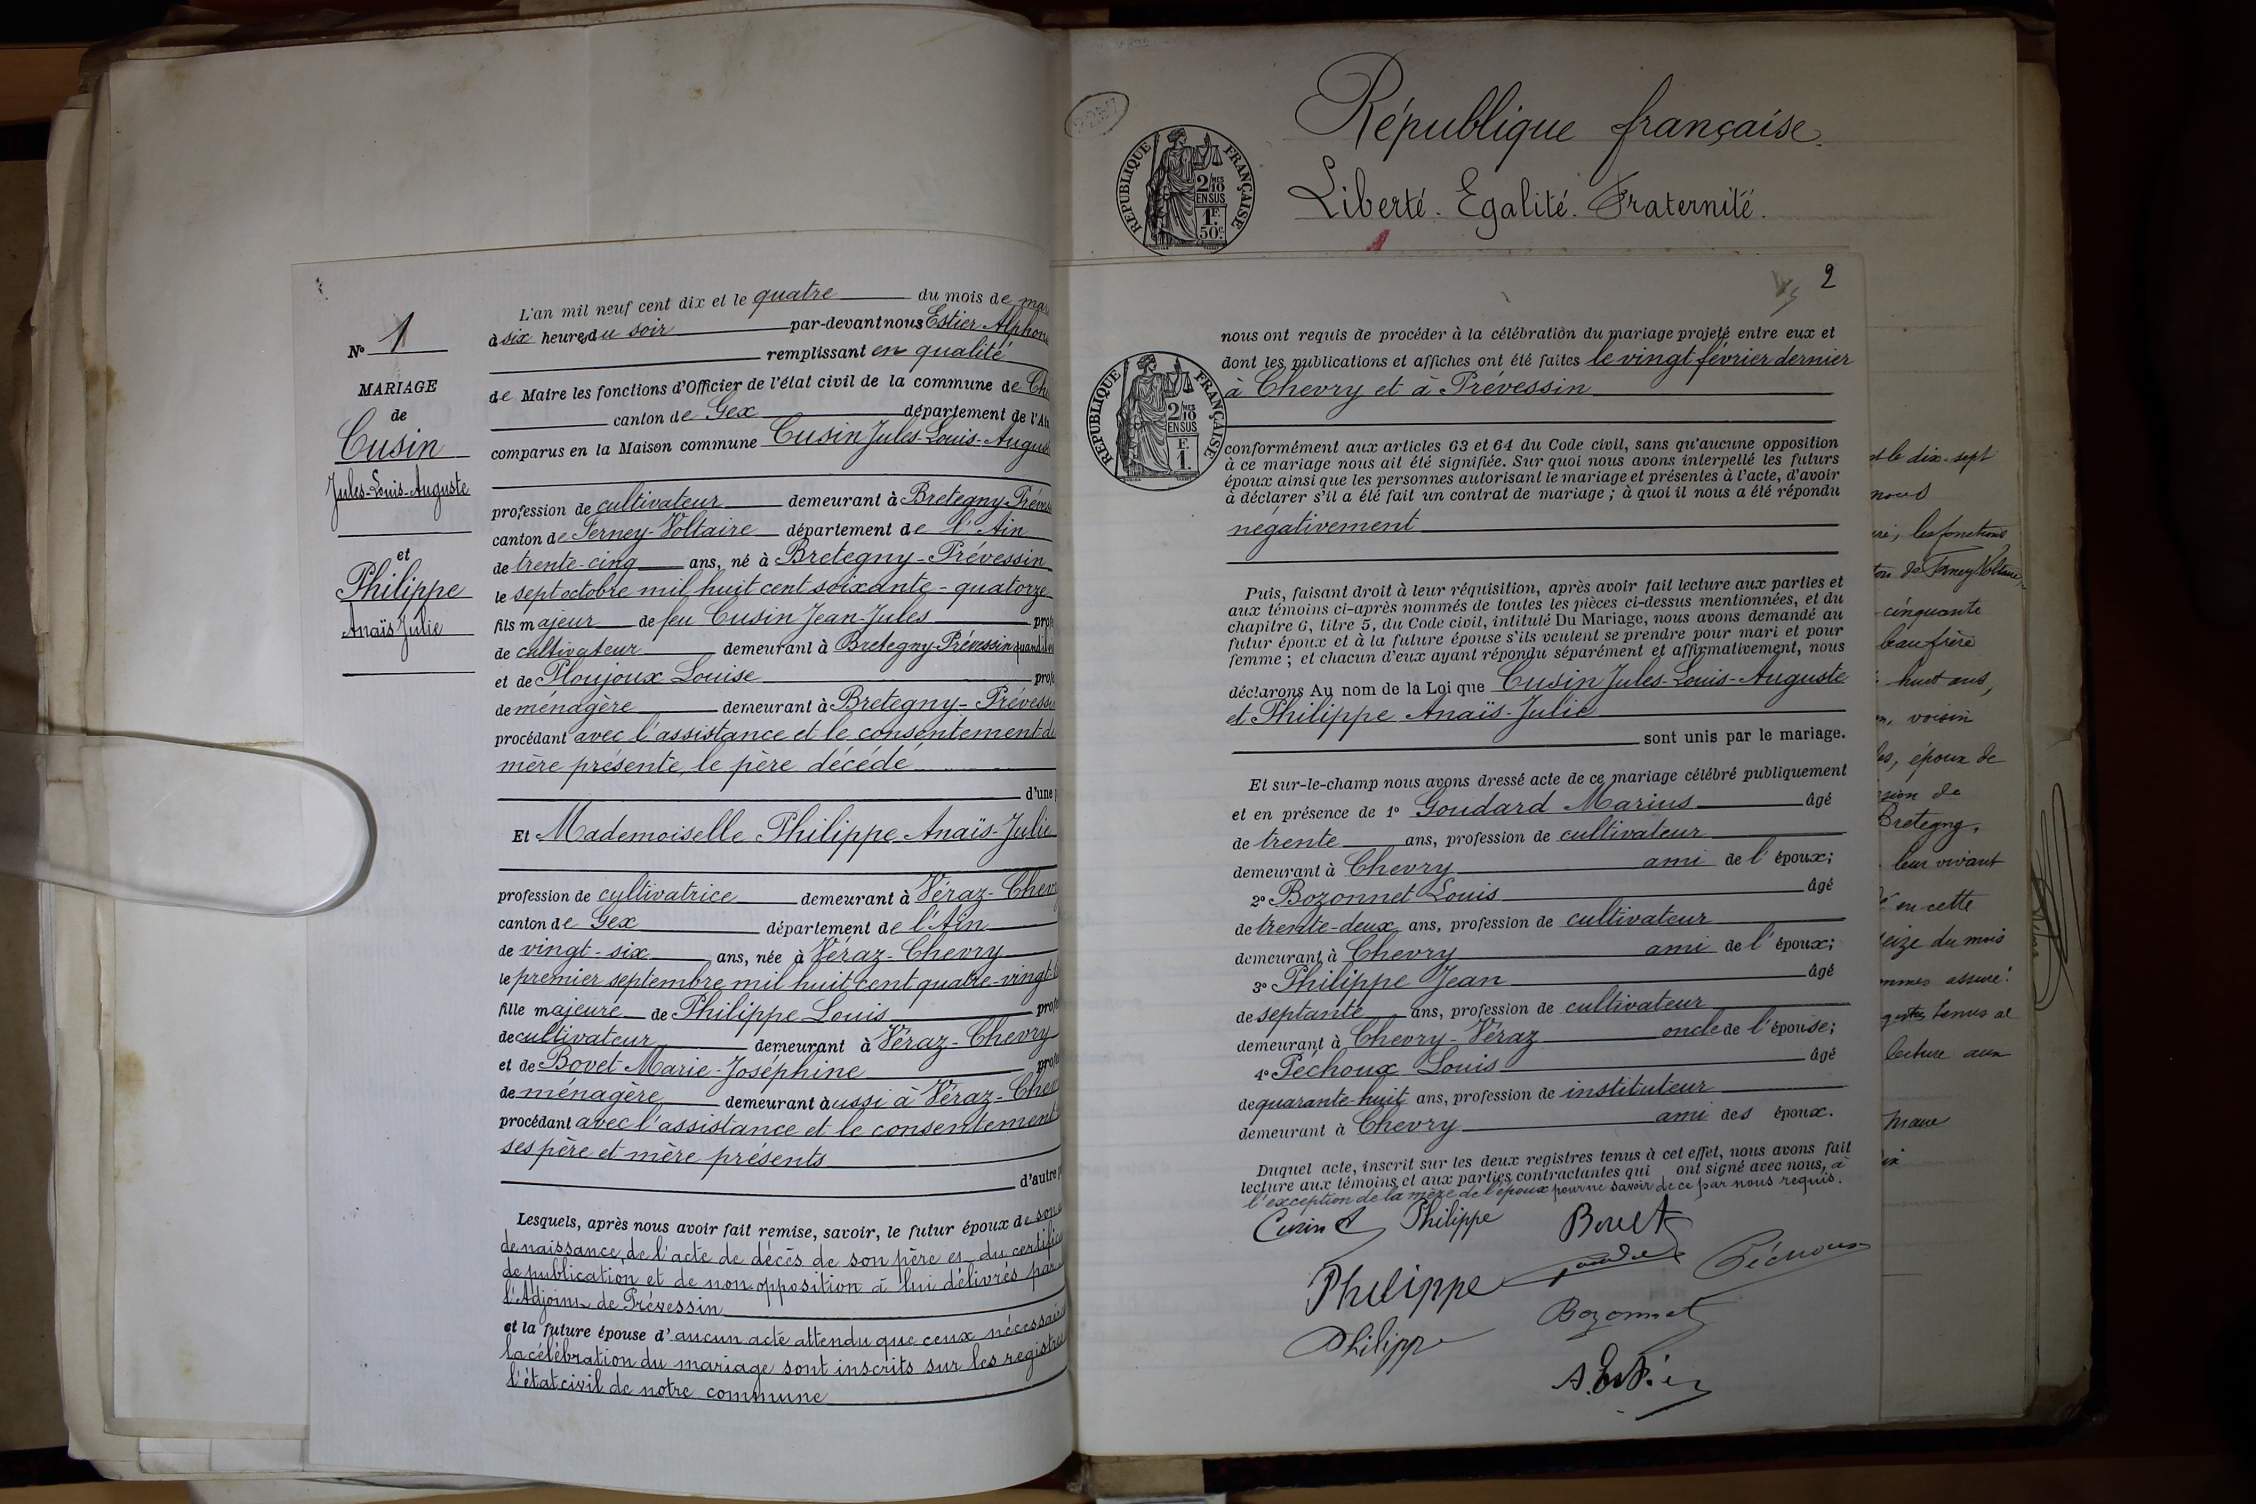 L'an mil neuf cent dix et le quatre du mois de
à six heures du soir par-devant nous Estier
remplissant en qualité
de Maire les fonctions d'Officier de l'état civil de la commune de
canton de Gex département de
comparus en la Maison commune Cusin Jules-Louis-
N° 1
MARIAGE
de
Cusin
Jules-Louis-Auguste
et
Philippe
Anaïs Julie
profession de cultivateur demeurant à Bretegny-
canton de Ferney-Voltaire département de l'Ain
de trente-cinq ans, né à Bretegny-Prévessin
le sept octobre mil huit cent soixante-quatorze
fils majeur de feu Cusin Jean-Jules
de cultivateur demeurant à Bretegny-Prévessin
et de Ploujoux Louise
de ménagère demeurant à Bretegny-
procédant avec l'assistance et le consentement de
mère présente, le père décédé
d'une
Et Mademoiselle Philippe Anaïs-Julie
profession de cultivatrice demeurant à Véraz-
canton de Gex département de l'Ain
de vingt-six ans, née à Véraz-Chevry
le premier septembre mil huit cent quatre-vingt-
fille majeure de Philippe Louis
de cultivateur demeurant à Véraz-Chevry
et de Bovet Marie-Joséphine
de ménagère demeurant aussi à Véraz-
procédant avec l'assistance et le consentement
ses père et mère présents
d'autre
Lesquels, après nous avoir fait remise, savoir, le futur époux de son
de naissance, de l'acte de décès de son père et du
de publication et de non opposition à lui délivrés par
l'Adjoint de Prévessin
et la future épouse d'aucun acte attendu que ceux
la célébration du mariage sont inscrits sur les
l'état civil de notre commune
République française.
Liberté. Egalité. Fraternité.
REPUBLIQUE FRANÇAISE
2/10
EN SUS
1F.
50c.
2
nous ont requis de procéder à la célébration du mariage projeté entre eux et
dont les publications et affiches ont été faites le vingt février dernier
à Chevry et à Prévessin
REPUBLIQUE FRANÇAISE
2/10
EN SUS
F.
1.
conformément aux articles 63 et 64 du Code civil, sans qu'aucune opposition
à ce mariage nous ait été signifiée. Sur quoi nous avons interpellé les futurs
époux ainsi que les personnes autorisant le mariage et présentes à l'acte, d'avoir
à déclarer s'il a été fait un contrat de mariage ; à quoi il nous a été répondu
négativement
Puis, faisant droit à leur réquisition, après avoir fait lecture aux parties et
aux témoins ci-après nommés de toutes les pièces ci-dessus mentionnées, et du
chapitre 6, titre 5, du Code civil, intitulé Du Mariage, nous avons demandé au
futur époux et à la future épouse s'ils veulent se prendre pour mari et pour
femme ; et chacun d'eux ayant répondu séparément et affirmativement, nous
déclarons Au nom de la Loi que Cusin Jules-Louis-Auguste
et Philippe Anaïs-Julie
sont unis par le mariage.
Et sur-le-champ nous avons dressé acte de ce mariage célébré publiquement
et en présence de 1° Goudard Marius âgé
de trente ans, profession de cultivateur
demeurant à Chevry ami de l'époux;
2° Bozonnet Louis âgé
de trente-deux ans, profession de cultivateur
demeurant à Chevry ami de l'époux;
3° Philippe Jean âgé
de septante ans, profession de cultivateur
demeurant à Chevry-Véraz oncle de l'épouse;
4° Péchoux Louis âgé
de quarante-huit ans, profession de instituteur
demeurant à Chevry ami des époux.
Duquel acte, inscrit sur les deux registres tenus à cet effet, nous avons fait
lecture aux témoins et aux parties contractantes qui ont signé avec nous, à
l'exception de la mère de l'époux pour ne savoir de ce par nous requis.
Cusin Philippe Bovet
Philippe Péchoux
Bozonnet
Philippe
A. Estier
le dix-sept
nous
les fonctions
de Ferney Voltaire
cinquante
beau frère
huit ans,
voisin
époux de
de
Bretegny,
leur vivant
en cette
du mois
assuré
tenus
lecture aux